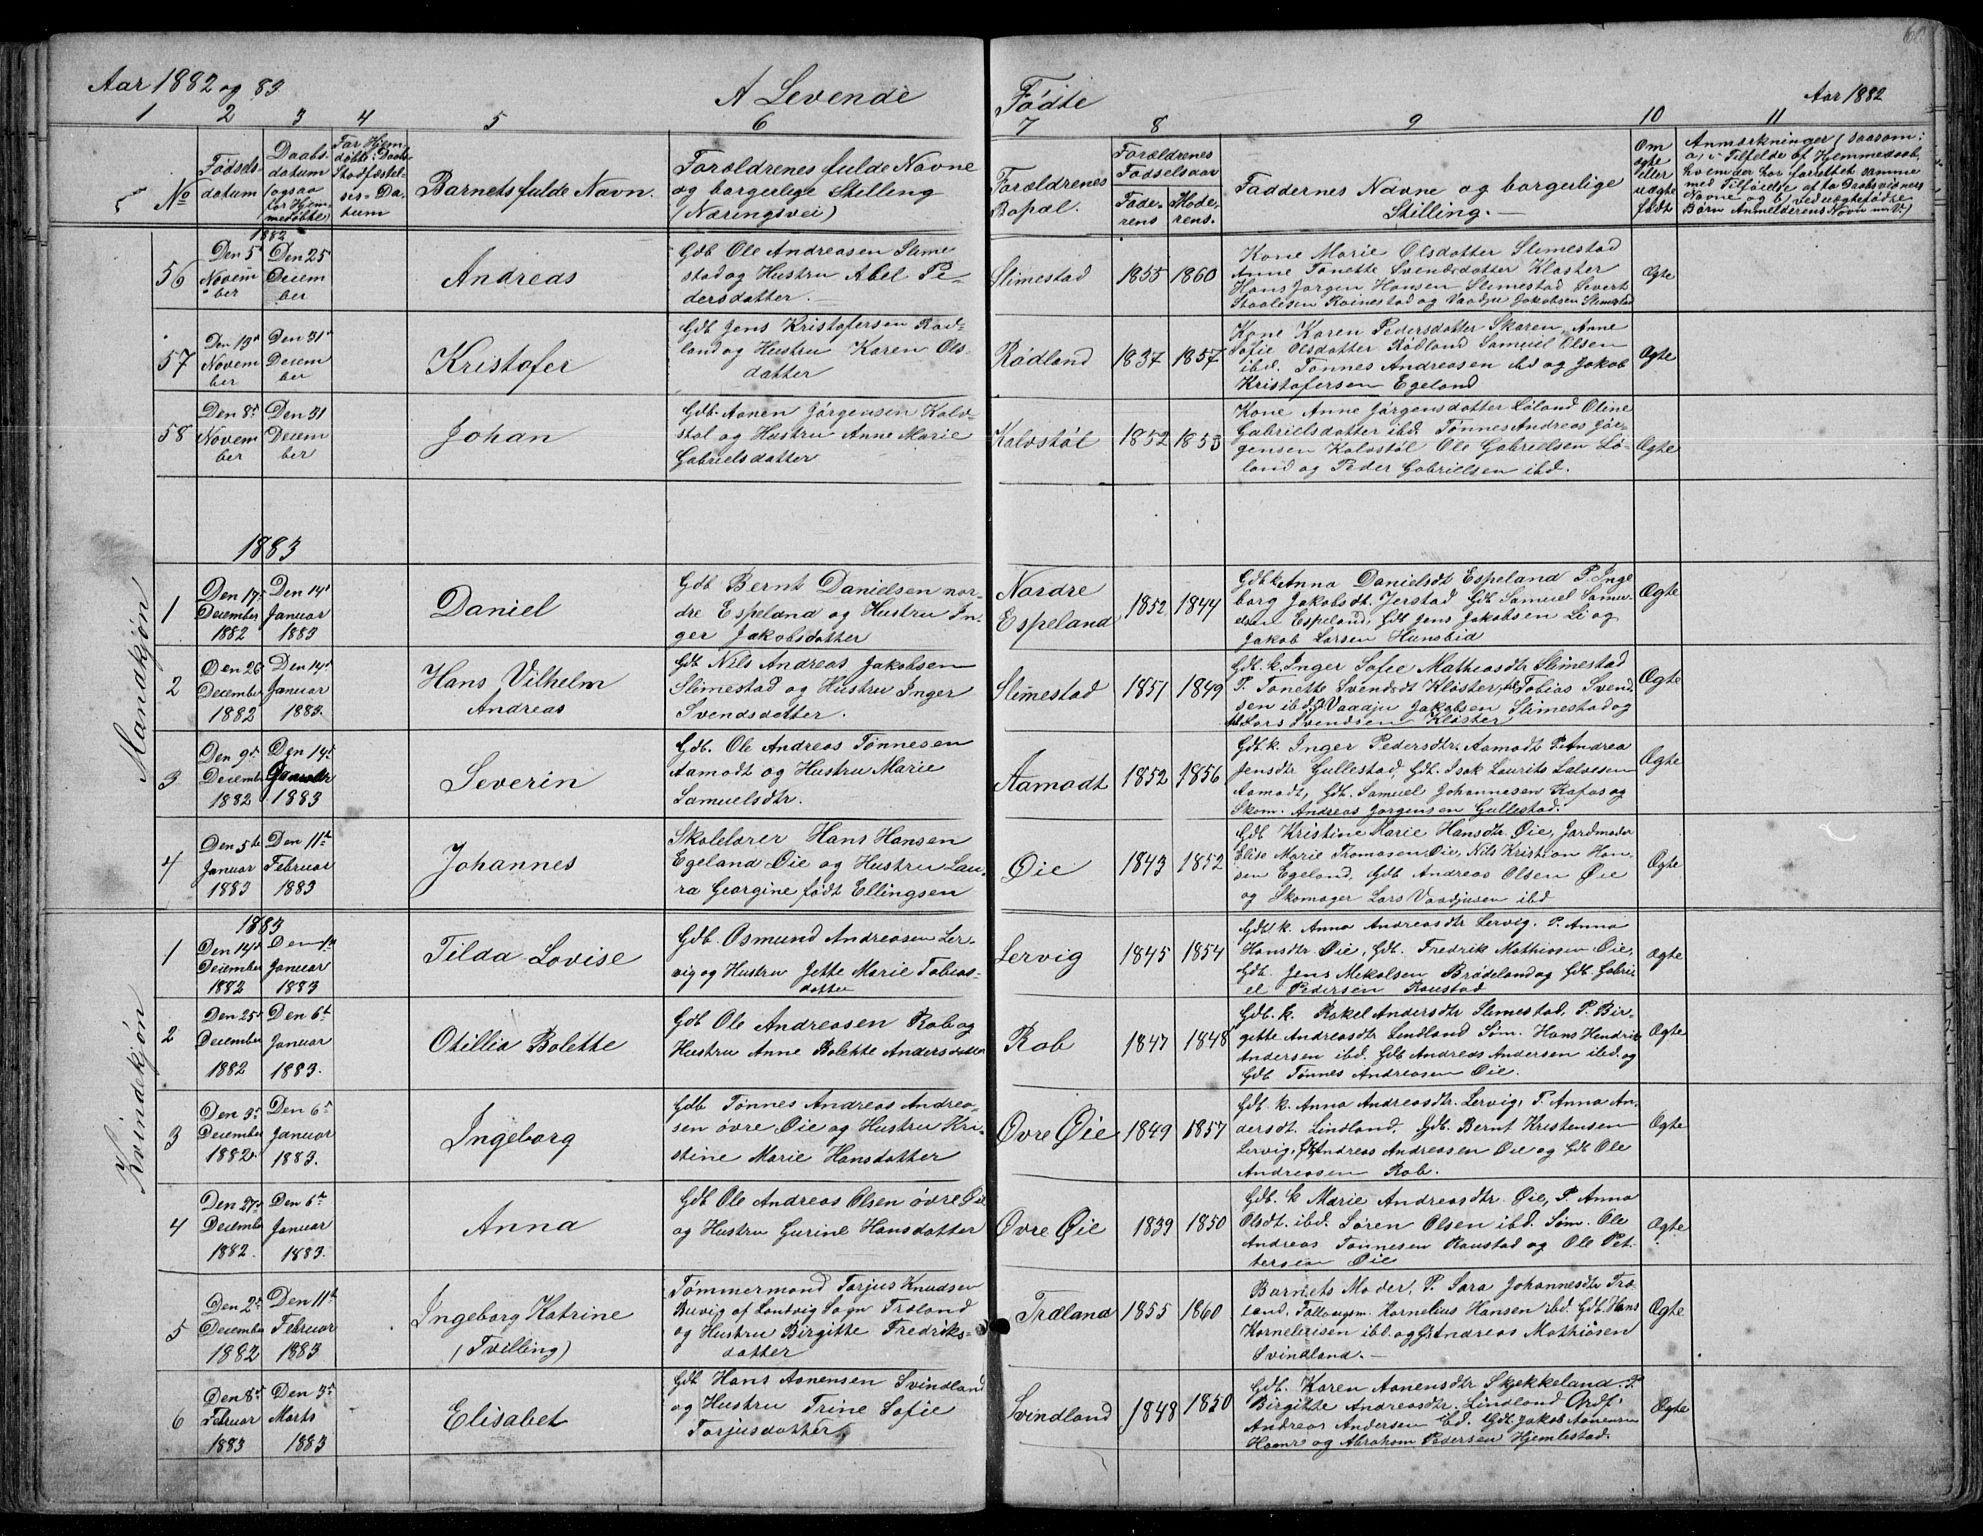 Aar 1882 og 83.
A Levende
Fødte
Aar 1882
1 2 3 4 5 6 7 8 9 10 11
No
Fødsels-
datum
Daabs-
datum
(ogsaa
for Hjem-
medøbte)
For Hjem-
døbte: Daabs
Stadfæstel-
ses-Da-
tum
Barnets fulde Navn.
Forældrenes fulde Navne
og borgerlige Stilling
(Næringsvei)
Forældrenes
Bopæl.
Forældrenes
Fødselsaar
Fade-
rens
Mode-
rens.
Faddernes Navne og borgerlige
Stilling.
Om
ægte
eller
uægte
født
Anmærkninger (saasom:
a, i Tilfelde af Hjemmedaab,
hvem der har forrettet samme
med Tilføielse af to Daabsvidners
Navne og b, ved uægtefødte
Børn Anmelderens Navn m. V.)
Mandkjøn
1882
56
Den 5t
Novem
ber
Den 25
Decem
ber
Andreas
Gdb Ole Andreasen Slime
stad og Hustru Abel Pe-
dersdatter.
Slimestad
1855 1860
Kone Marie Olsdatter Slimestad
Anne Tonette Svendsdatter Kloster
Hans Jørgen Hansen Slimestad Severt
Staalesen Roinestad og Vaadju Jakobsen Slimestad
Ægte
57
Den 19d
Novem
ber
Den 31d
Decem
ber
Kristofer
Gdb Jens Kristofersen Rød-
land og Hustru Karen Ols-
datter
Rødland
1837 1857
Kone Karen Pedersdatter Skaren, Anne
Sofie Olsdatter Rødland Samuel Olsen
ibd. Tønnes Andreasen ibd og Jakob
Kristofersen Egeland
Ægte
58
Den 8d
Novem
ber
Den 31
Decem
ber
Johan
Gdb. Aanen Jørgensen Kalv-
støl og Hustru Anne Marie
Gabrielsdatter
Kalvstøl
1852 1853
Kone Anne Jørgensdatter Løland Oline
Gabrielsdatter ibd. Tønnes Andreas Jør-
gensen Kalvstøl Ole Gabrielsen Lø-
land og Peder Gabrielsen ibd.
Ægte
1883
1
Den 17d
December
1882
Den 14d
Januar
1883
Daniel
Gdb Bernt Danielsen nor-
dre Espeland og Hustru In-
ger Jakobsdatter
Nordre
Espeland
1852 1844
Gdb k Anna Danielsdt Espeland P. Inge
borg Jakobsdt. Jerstad Gdb Samuel Samu-
elsen Espeland, Gdb Jens Jakobsen Li og
Jakob Larsen Hunsbid
Ægte
2
Den 26
December
1882
Den 14d
Januar
1883.
Hans Vilhelm
Andreas
Gdb Nils Andreas Jakobsen
Slimestad og Hustru Inger
Svendsdatter.
Slimestad
1851 1849
Gdb. k. Inger Sofie Mathiasdtr Slimestad
P. Tonette Svendsdt Kloster, Tobias Svend
sen ibd. Vaadju Jakobsen Slimestad og
Lars Svendsen Kloster
Ægte
3
Den 9d
December
1882
Den 14d
Januar
1883
Severin
Gdb. Ole Andreas Tønnesen
Aamodt og Hustru Marie
Samuelsdtr.
Aamodt
1852 1856
Gdb k. Inger Pedersdtr. Aamodt P. Andrea
Jensdtr Gullestad, Gdb. Isak Laurits Salvesen
Aamodt, Gdb. Samuel Johannesen Kafos og
Skom. Andreas Jørgensen Gullestad.
Ægte
4
Den 5te
Januar
1883
Den 11te
Februar
1883
Johannes
Skolelærer Hans Hansen
Egeland Øie og Hustru Lau-
ra Georgine født Ellingsen
Øie
1843 1852
Gdb Kristine Marie Hansdtr Øie, Jordmoder
Elise Marie Tomasen Øie, Nils Kristian Han-
sen Egeland. Gdb Andreas Olsen Øie
og Skomager Lars Vaadjusen ibd
Ægte
Kvindekjøn
1883
1
Den 14d
December
1882
Den 1te
Januar
1883
Tilda Lovise
Gdb. Osmund Andreasen Ler-
vig og Hustru Jette Marie Tobias-
datter
Lervig
1845 1854
Gdb k. Anna Andreasdtr Lervig. P. Anna
Hansdtr Øie, Gdb. Fredrik Mathiasen Øie,
Gdb. Jens Mikalsen Brådeland og Gdb Gabri-
el Pedersen Raustad
Ægte
2
Den 25d
December
1882
Den 6te
Januar
1883.
Otillia Bolette
Gdb Ole Andreasen Rob og
Hustru Anne Bolette Andersdatter
Rob
1847 1848
Gdb. k. Rakel Andersdtr Slimestad, P. Bir-
gitte Andreasdtr Lindland Søm. Hans Hendrik
Andersen ibd. Gdb Andreas Andersen ibd. og
Gdb. Tønnes Andreasen Øie.
Ægte
3
Den 3d
December
1882
Den 6te
Januar
1883.
Ingeborg
Gdb Tønnes Andreas Andrea-
sen øvre Øie og Hustru Kri-
stine Marie Hansdatter
Øvre Øie
1849 1857
Gdb. k. Anna Andreasdtr. Lervig, P. Anna An-
dersdt. Lindland. Gdb. Bernt Kristensen
Lervig, Gdb Andreas Andreasen Øie og Gdb Ole
Andreasen Rob.
Ægte
4
Den 27d
December
1882.
Den 6te
Januar
1883.
Anna
Gdb Ole Andreas Olsen øvre Øie
og Hustru Gurine Hansdatter
Øvre Øie
1839 1850
Gdb. k Marie Andreasdtr. Øie, P. Anna
Olsdt. ibd. Søren Olsen ibd. Søm. Ole
Andreas Tønnesen Raustad og Ole Pet-
tersen Øie
Ægte
5
Den 2d
December
1882
Den 11te
Februar
1883
Ingeborg Katrine
(Tvilling)
Tømmermand Tarjus Knudsen
Buvig af Søndvig Sogn Træland
og Hustru Birgitte Fredriks-
datter
Træland
1855 1860
Barnets Moder, P. Sara Johannesdtr Træ-
land. Kornelius Hansen ibd. Gdb. Hans
Korneliusen ibd. og Gdb Andreas Mathiasen
Svindland.
Ægte
6
Den 8d
Februar
1883
Den 3d
Marts
1883
Elisabet
Gdb Hans Aanensen Svindland
og Hustru Trine Sofie
Tarjusdatter
Svindland
1848 1850
Gdb. Karen Aanensdtr Skjekkeland. P
Birgitte Andreasdtr. Lindland Grdf.
Andreas Andersen ibd. Gdb. Jakob Aanensen
Haanr og Abraham Pedersen Hjemlestad.
Ægte